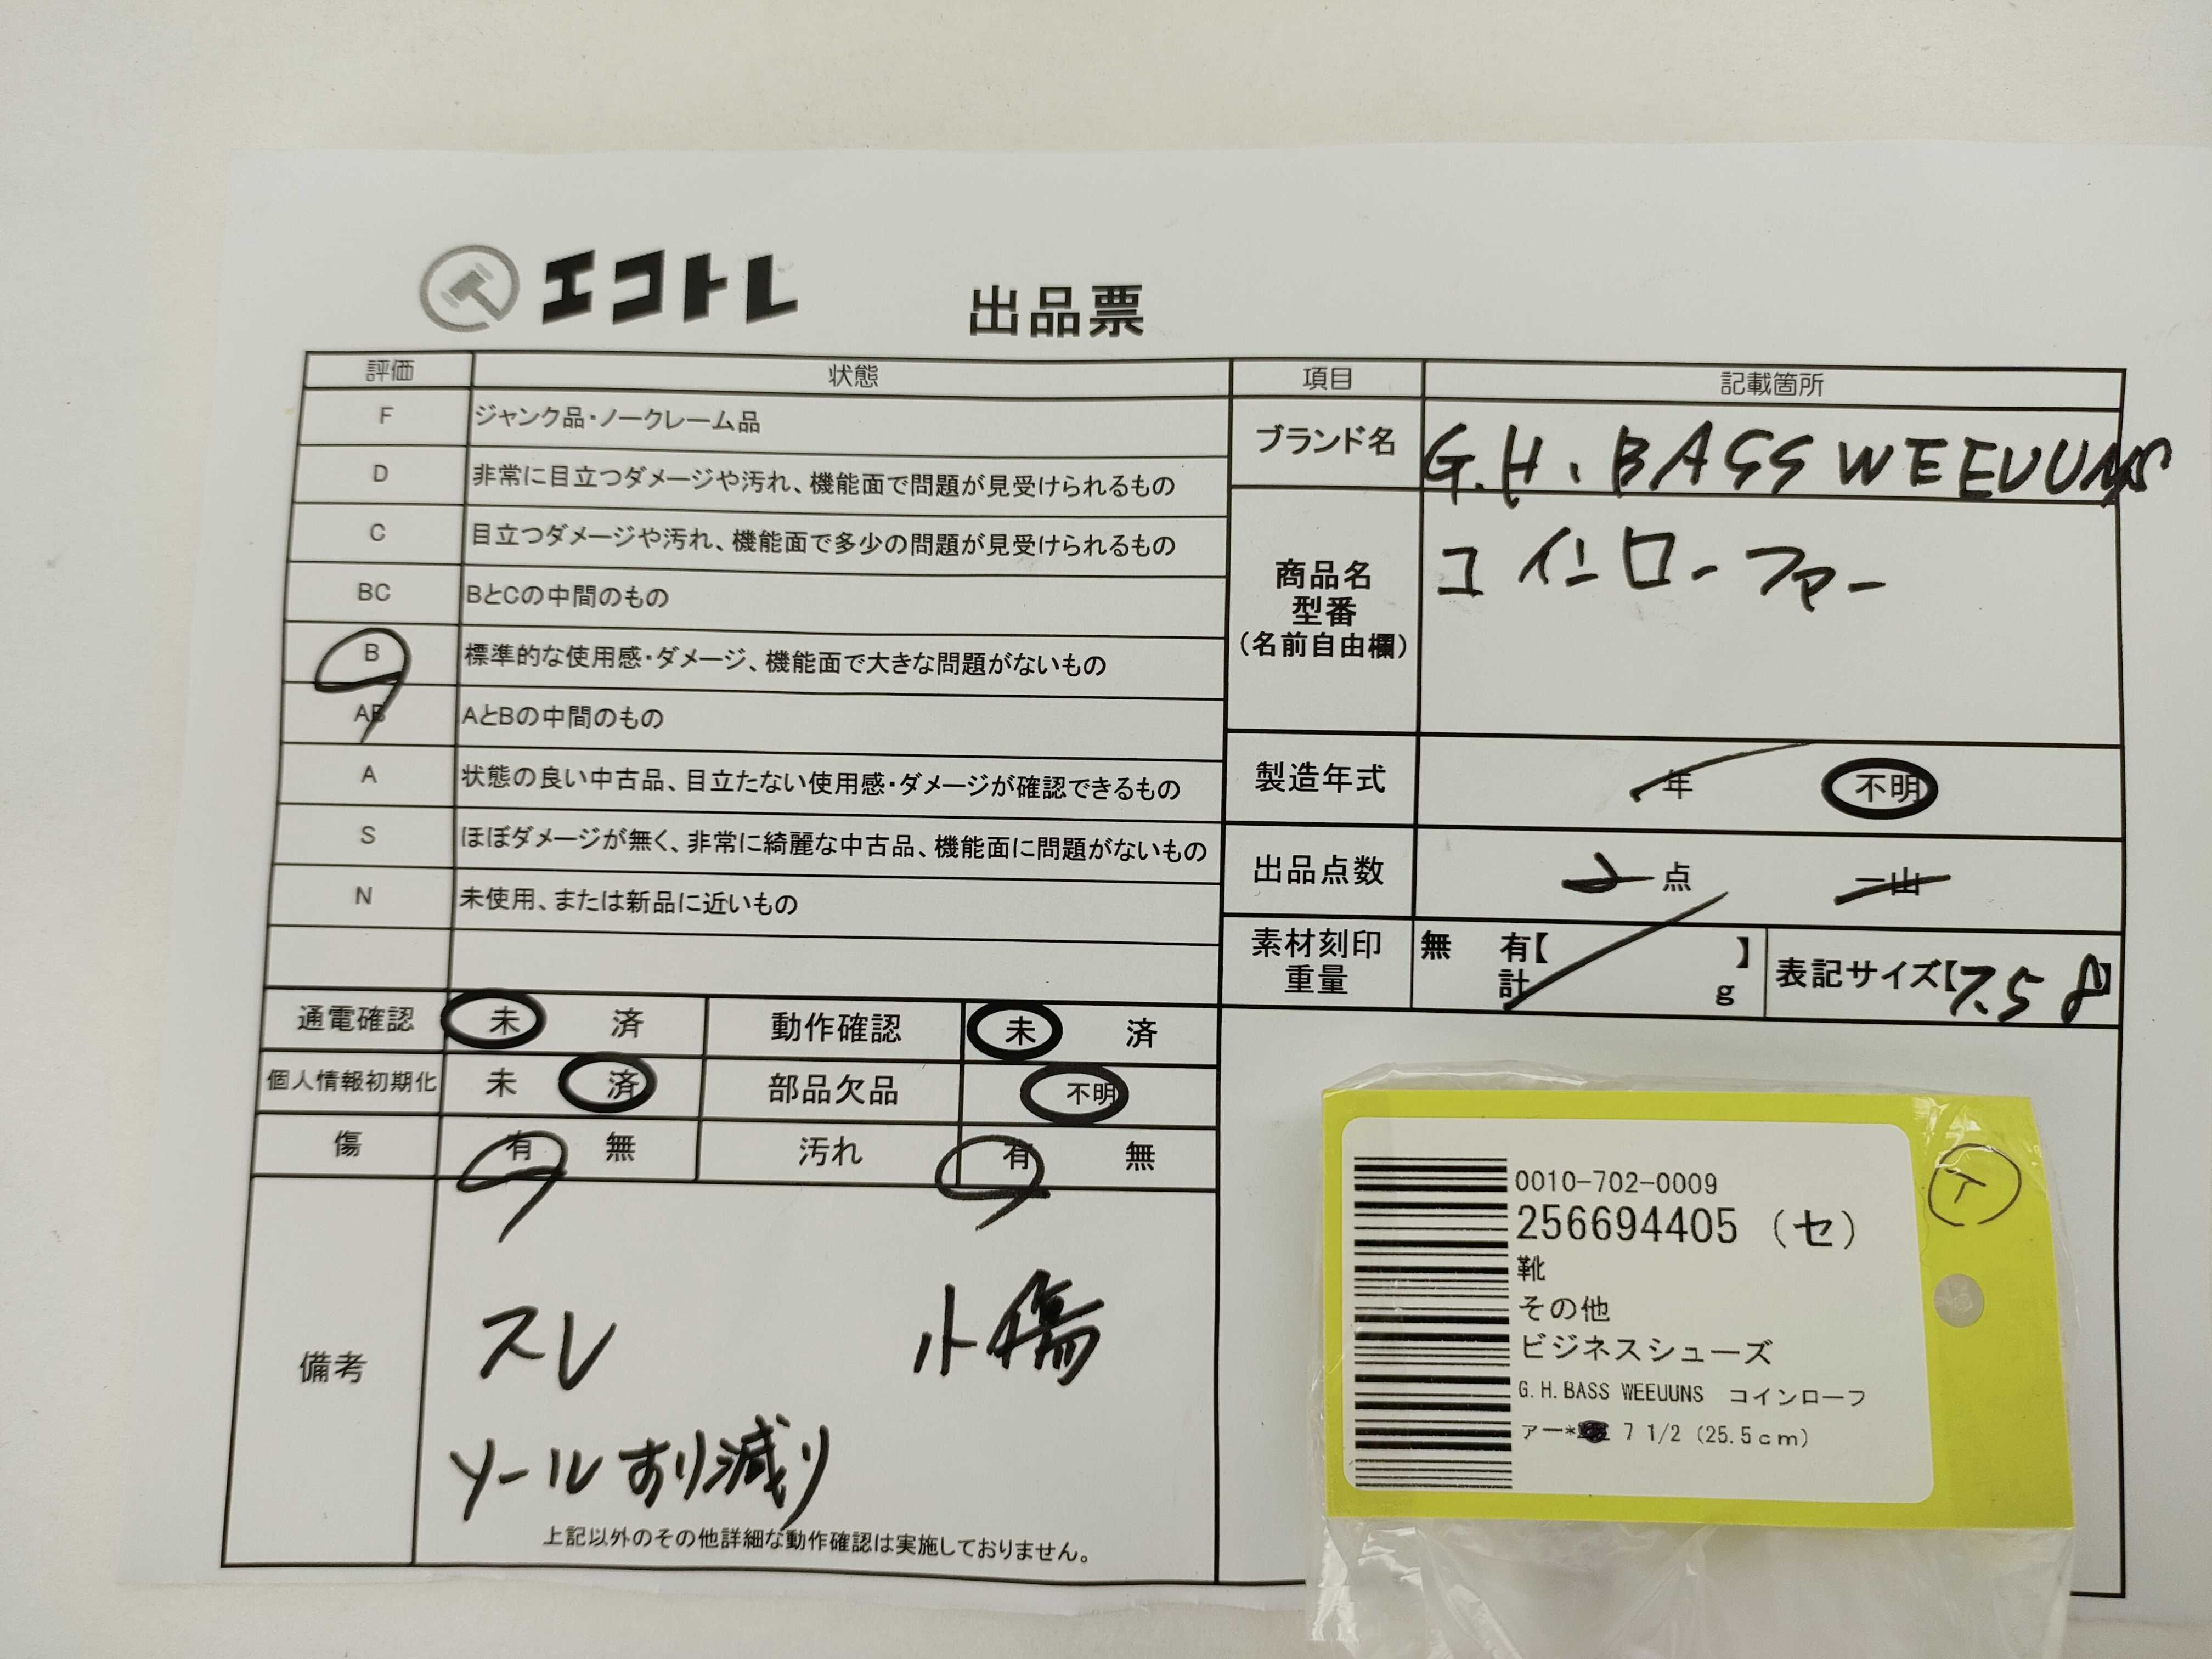 エコトレ 出品票
評価 状態
F ジャンク品・ノークレーム品
D 非常に目立つダメージや汚れ、機能面で問題が見受けられるもの
C 目立つダメージや汚れ、機能面で多少の問題が見受けられるもの
BC BとCの中間のもの
B 標準的な使用感・ダメージ、機能面で大きな問題がないもの
AB AとBの中間のもの
A 状態の良い中古品、目立たない使用感・ダメージが確認できるもの
S ほぼダメージが無く、非常に綺麗な中古品、機能面に問題がないもの
N 未使用、または新品に近いもの
通電確認 未 済 動作確認 未 済
個人情報初期化 未 済 部品欠品 不明
傷 有 無 汚れ 有 無
備考
スレ 小傷
ソールすり減り
上記以外のその他詳細な動作確認は実施しておりません。
項目 記載箇所
ブランド名 G.H.BASS WEEUUNS
商品名
型番
(名前自由欄)
コインローファー
製造年式 年 不明
出品点数 2点 一山
素材刻印
重量
無 有【 】
計 g
表記サイズ【7.5 8】
0010-702-0009
256694405 (セ)
靴
その他
ビジネスシューズ
G.H.BASS WEEUUNS コインローフ
ァー* 7 1/2 (25.5cm)